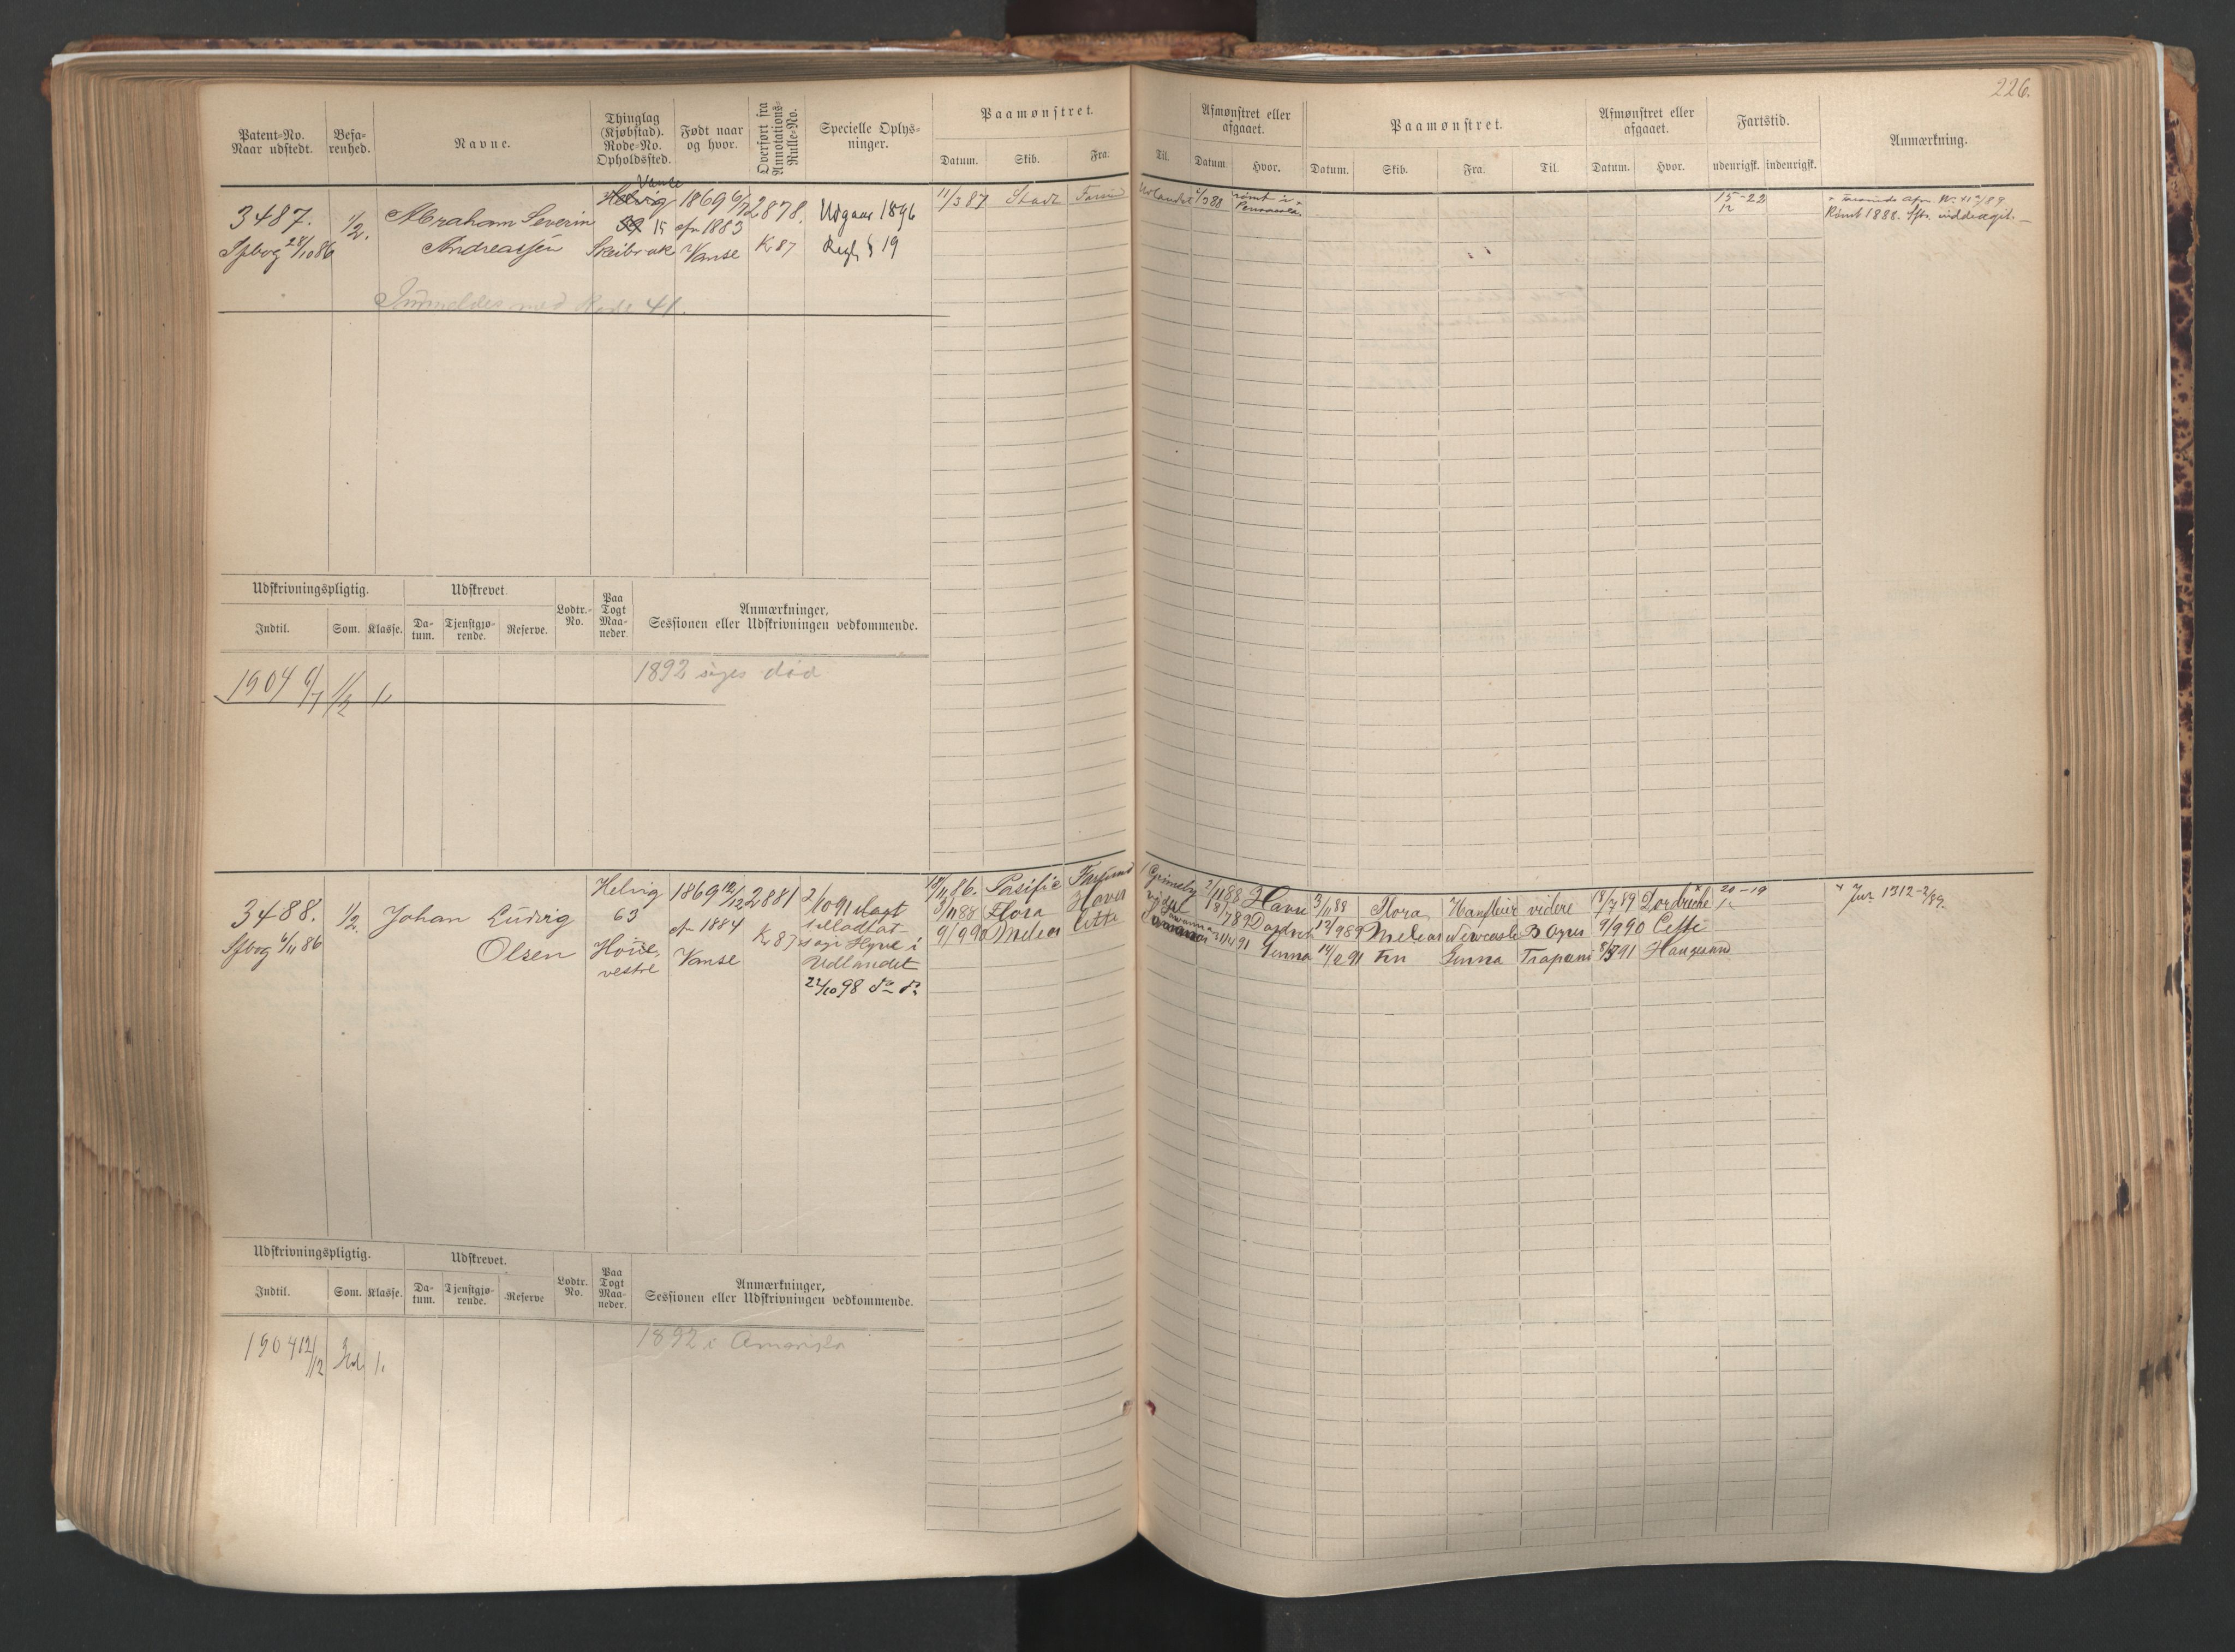 226.
Patent-No. Naar udstedt.
Befa-renhed.
Navne.
Thinglag (Kjøbstad). Rode-No. Opholdssted.
Født naar og hvor.
Overført fra Annotations-Rulle-No.
Specielle Oplys-ninger.
Paamønstret.
Datum. Skib. Fra. Til.
Afmønstret eller afgaaet.
Datum. Hvor.
Paamønstret.
Datum. Skib. Fra. Til.
Afmønstret eller afgaaet.
Datum. Hvor.
Fartstid.
udenrigsk. indenrigsk.
Anmærkning.
Vanse
3487. 1/2. Abraham Severin Helvig 1869 6/7 2878. Udgaar 1896
Sfbog 28/10 86 Andreassen 15 cfn 1883 K 87 Regl § 19
Skeibrok Vanse
11/3 87 Stadt Farsund Udlandet 1/3 88 rømt i Pensacola
15-22
12
Rømt 1888. Sfb. inddragit.
Indmeldes med Rode 41.
Udskrivningspligtig. Udskrevet. Lodtr.-No. Paa Togt Maa-neder. Anmærkninger, Sessionen eller Udskrivningen vedkommende.
Indtil. Som. Klasse. Da-tum. Tjenstgjø-rende. Reserve.
1904 6/7 1/2 1. 1892 siges død
3488. 1/2. Johan Ludvig Olsen
Sfbog 6/11 86
Helvig
63
Hoüe,
vestre
1869 12/12
cfn 1884
Vanse
2881
K 87
2/10 91 Magt
tilladtat
søge Hyre i
Udlandet
22/10 98 do do
18/11 86. Pasific Farsund Grimsby 2/11 88 Havre 3/11 88 Flora Hanfleur videre 18/7 89 Dordrecht 20-19
3/11 88 Flora Havre 18/7 89 Dordrecht 12/9 89 Melear Newcastle B Ayres 9/9 90 Cette
9/9 90 Melear Cette 21/1 91 Genua 14/2 91 Genua Trapani 8/5 91 Haugesund
Jvr 1312-2/89.
Udskrivningspligtig. Udskrevet. Lodtr. No. Paa Togt Maa-neder. Anmærkninger, Sessionen eller Udskrivningen vedkommende.
Indtil. Som. Klasse. Da-tum. Tjenstgjø-rende. Reserve
1904 12/12 1. 1892 i Amerika